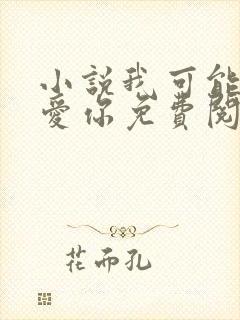 小說我可能
愛你免費閱
花而孔